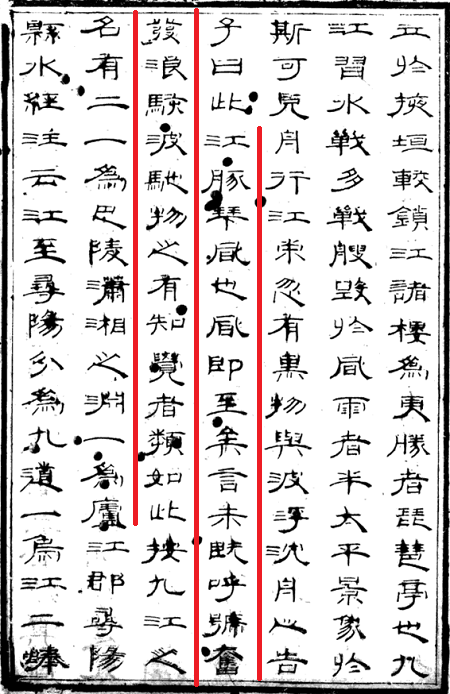 立於掖垣較鎖江諸樓為更勝者琵琶亭也九
江習水戰多戰艘毀於風雨者半太平景象於
斯可見舟行江來忽有黑物與波浮沈舟人告
予曰此江豚拜風也風即至矣言未既呼號奮
發浪駭波馳物之有知覺者類如此按九江之
名有二一為巴陵瀟湘之淵一為廬江郡尋陽
縣水經注云江至尋陽分為九道一烏江二蜯